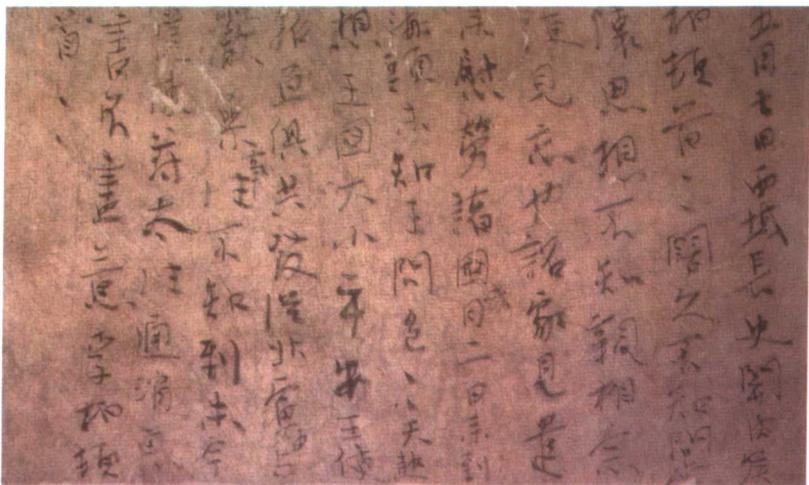 五月七日西域長史關内侯
柏頓首、、闊久不知問
懷思想不知親相念
便見忘也詔家見遣
来慰勞諸國此月二日来到
海頭未知王問邑、、天熱
想王國大小平安王使
招亘俱共發從北虜中與
嚴參事往不知到未今
遣使苻太往通消息
書不盡意李柏頓
首、、